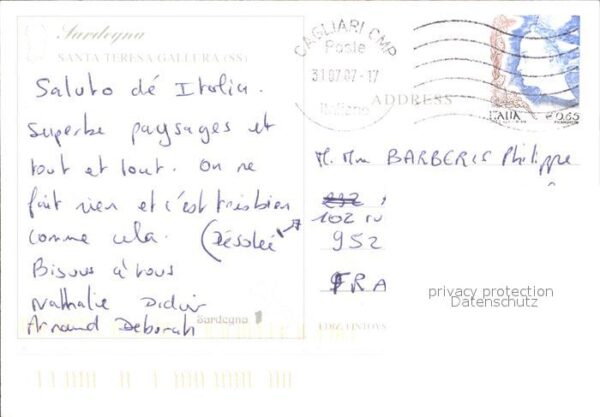 Sardegna
SANTA TERESA GALLURA (SS)
CAGLIARI CMP
Poste
31 07 07 - 17
Italiane
ITALIA €0,65
ADDRESS
Saluto dé Italia.
Superbe paysages et
tout et tout. On ne
fait rien et c'est très bien
comme cela. (Désolée
Bisous à vous
Nathalie Didier
Arnaud Deborah
M. Mme BARBERIS Philippe
102
952
FRA
Sardegna
privacy protection
Datenschutz